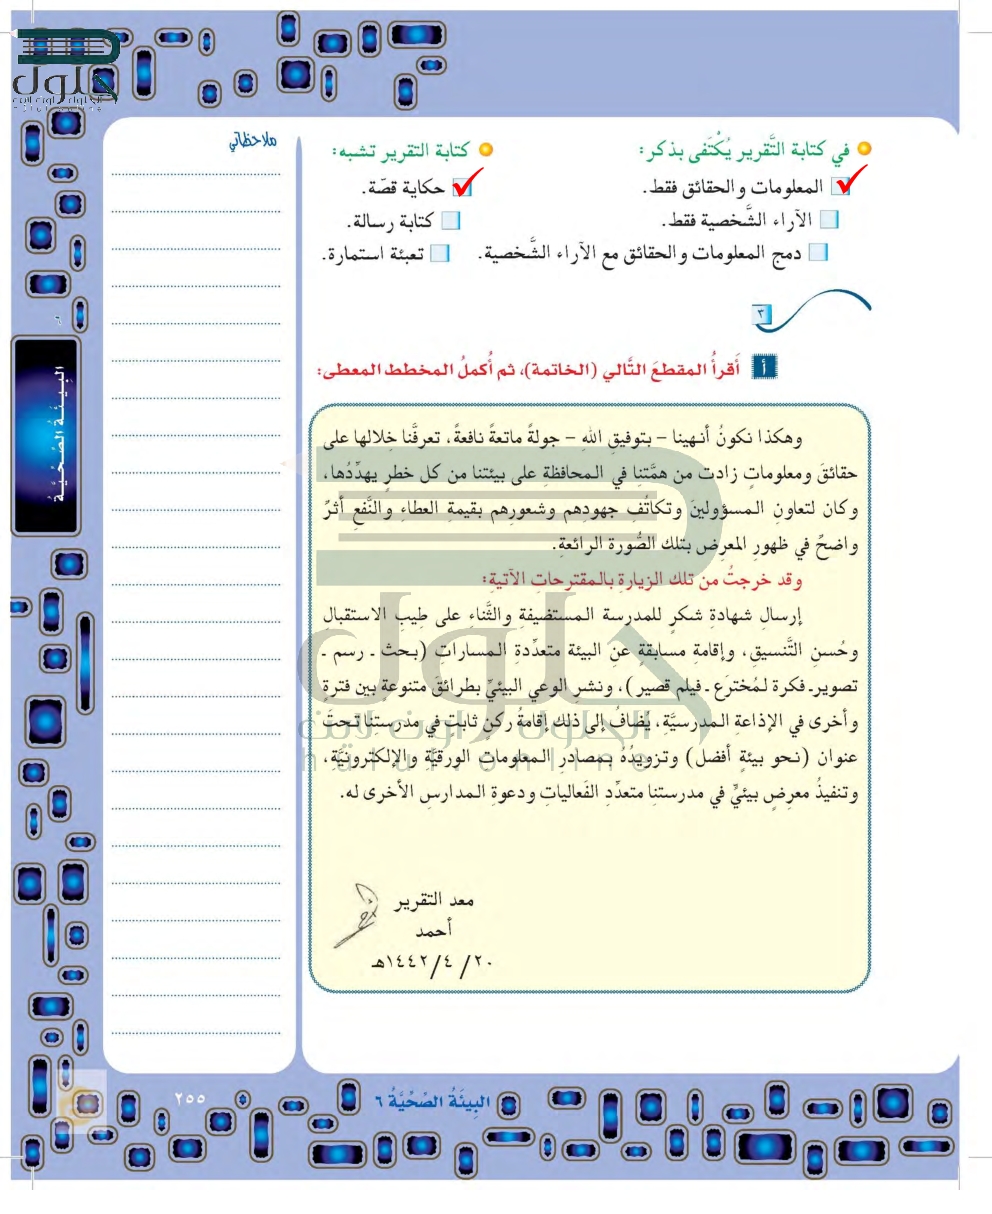 حلول
الحلول اون لاين
hulul.online
ملاحظاتي
في كتابة التَّقرير يُكْتَفى بذكر:
المعلومات والحقائق فقط.
الآراء الشَّخصية فقط.
دمج المعلومات والحقائق مع الآراء الشَّخصية.
كتابة التقرير تشبه:
حكاية قصّة.
كتابة رسالة.
تعبئة استمارة.
٣
أ أَقرأُ المقطعَ التَّالي (الخاتمة)، ثم أُكملُ المخطط المعطى:
وهكذا نكونُ أنهينا – بتوفيقِ اللهِ – جولةً ماتعةً نافعةً، تعرفَّنا خلالها على
حقائقَ ومعلوماتٍ زادت من همَّتنا في المحافظةِ على بيئتنا من كل خطرٍ يهدِّدُها،
وكان لتعاونِ المسؤولينَ وتكاتُفِ جهودِهم وشعورِهم بقيمةِ العطاءِ والنَّفعِ أثرٌ
واضحٌ في ظهور المعرضِ بتلك الصُّورة الرائعةِ.
وقد خرجتُ من تلك الزيارةِ بالمقترحاتِ الآتيةِ:
إرسالِ شهادةِ شكرٍ للمدرسة المستضيفةِ والثَّناءِ على طِيبِ الاستقبالِ
وحُسنِ التَّنسيقِ، وإقامةِ مسابقة عن البيئة متعدِّدةِ المسارات (بحث ـ رسم ـ
تصوير ـ فكرة لمُخترَع ـ فيلم قصير)، ونشرِ الوعي البيئيِّ بطرائقَ متنوعة بين فترةٍ
وأخرى في الإذاعة المدرسيَّةِ، يُضافُ إلى ذلك إقامةُ ركن ثابتٍ في مدرستنا تحتَ
عنوان (نحو بيئةٍ أفضل) وتزويدُهُ بمصادرِ المعلومات الورقيَّة والإلكترونيَّةِ،
وتنفيذُ معرضٍ بيئيٍّ في مدرستنا متعدِّدِ الفَعالياتِ ودعوةِ المدارسِ الأخرى له.
معد التقرير
أحمد
٢٠/٤/١٤٤٢هـ
حلول
الحلول اون لاين
hulul.online
البِيئَةُ الصِّحِّيَّةُ
البِيئَةُ الصِّحِّيَّةُ ٦
٢٥٥